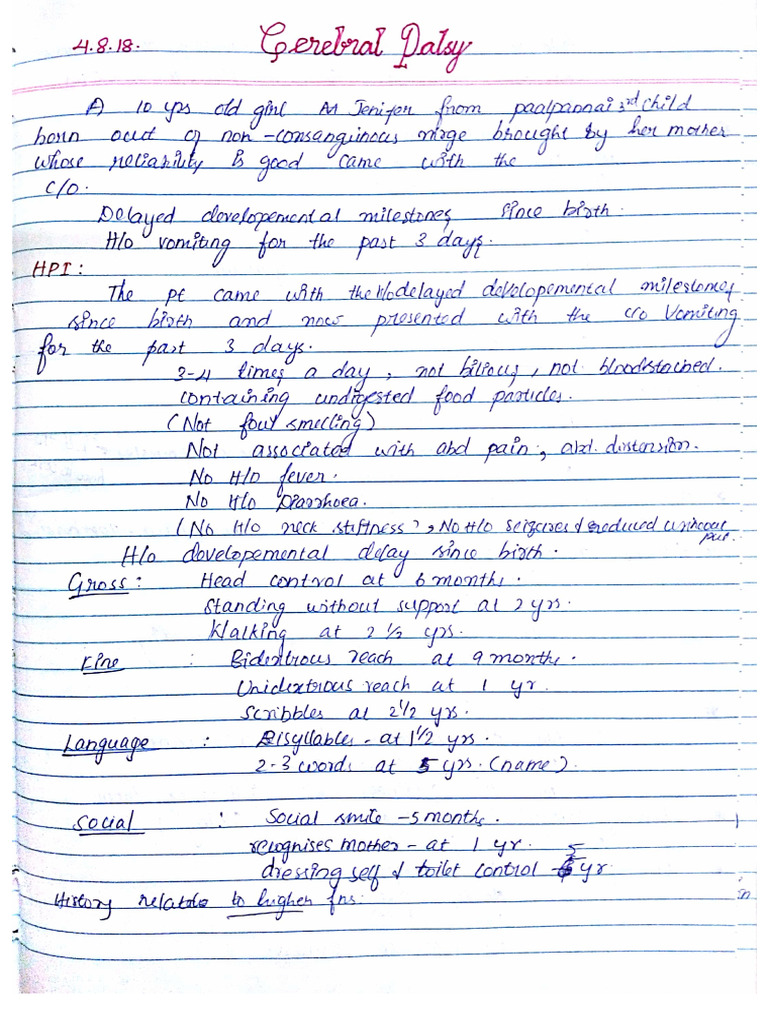 4.8.18. Cerebral Palsy
A 10 yrs old girl Jenifer from paalpannai 3rd child
born out of non-consanguinous mrge brought by her mother
whose reliability is good came with the
C/O.
Delayed developemental milestones since birth.
H/o vomiting for the past 3 days.
HPI:
The pt came with the H/o delayed developemental milestones
since birth and now presented with the c/o Vomiting
for the past 3 days.
3-4 times a day, not bilious, not bloodstained.
containing undigested food particles.
(Not foul smelling)
Not associated with abd pain, abd. distension.
No H/o fever.
No H/o Diarrhoea.
(No H/o neck stiffness), No H/o seizures & reduced urine out
put.
H/o developemental delay since birth.
Gross: Head control at 6 months.
Standing without support at 2 yrs.
Walking at 2 1/2 yrs.
Fine : Bidextrous reach at 9 months.
Unidextrous reach at 1 yr.
Scribbles at 2 1/2 yrs.
Language : Bisyllables - at 1 1/2 yrs.
2-3 words at 5 yrs. (name)
Social : Social smile - 5 months.
recognises mother - at 1 yr.
dressing self & toilet control - 5 yr
History relate to higher fns.